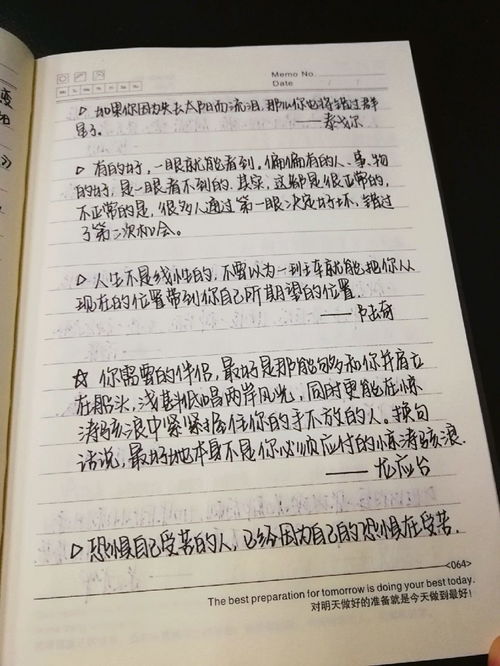 Memo No.
Date / /
▷ 如果你因为失去太阳而流泪，那么你也将错过群
星了。
——泰戈尔
▷ 有的好，一眼就能看到，偏偏有的人、事、物
的好，是一眼看不到的。其实，这都是很正常的，
不正常的是，很多人通过第一眼决定好坏，错过
了第二次机会。
▷ 人生不是线性的，不要以为一列车就能把你从
现在的位置带到你自己所期望的位置。
——古奇
☆ 你需要的伴侣，最好是那能够和你并肩立
在船头，浅斟低唱两岸风光，同时更能在惊
涛骇浪中紧紧握住你的手不放的人。换句
话说，最好她本身不是你必须应付的惊涛骇浪.
——龙应台
▷ 恐惧自己受苦的人，已经因为自己的恐惧在受苦.
<064>
The best preparation for tomorrow is doing your best today.
对明天做好的准备就是今天做到最好！